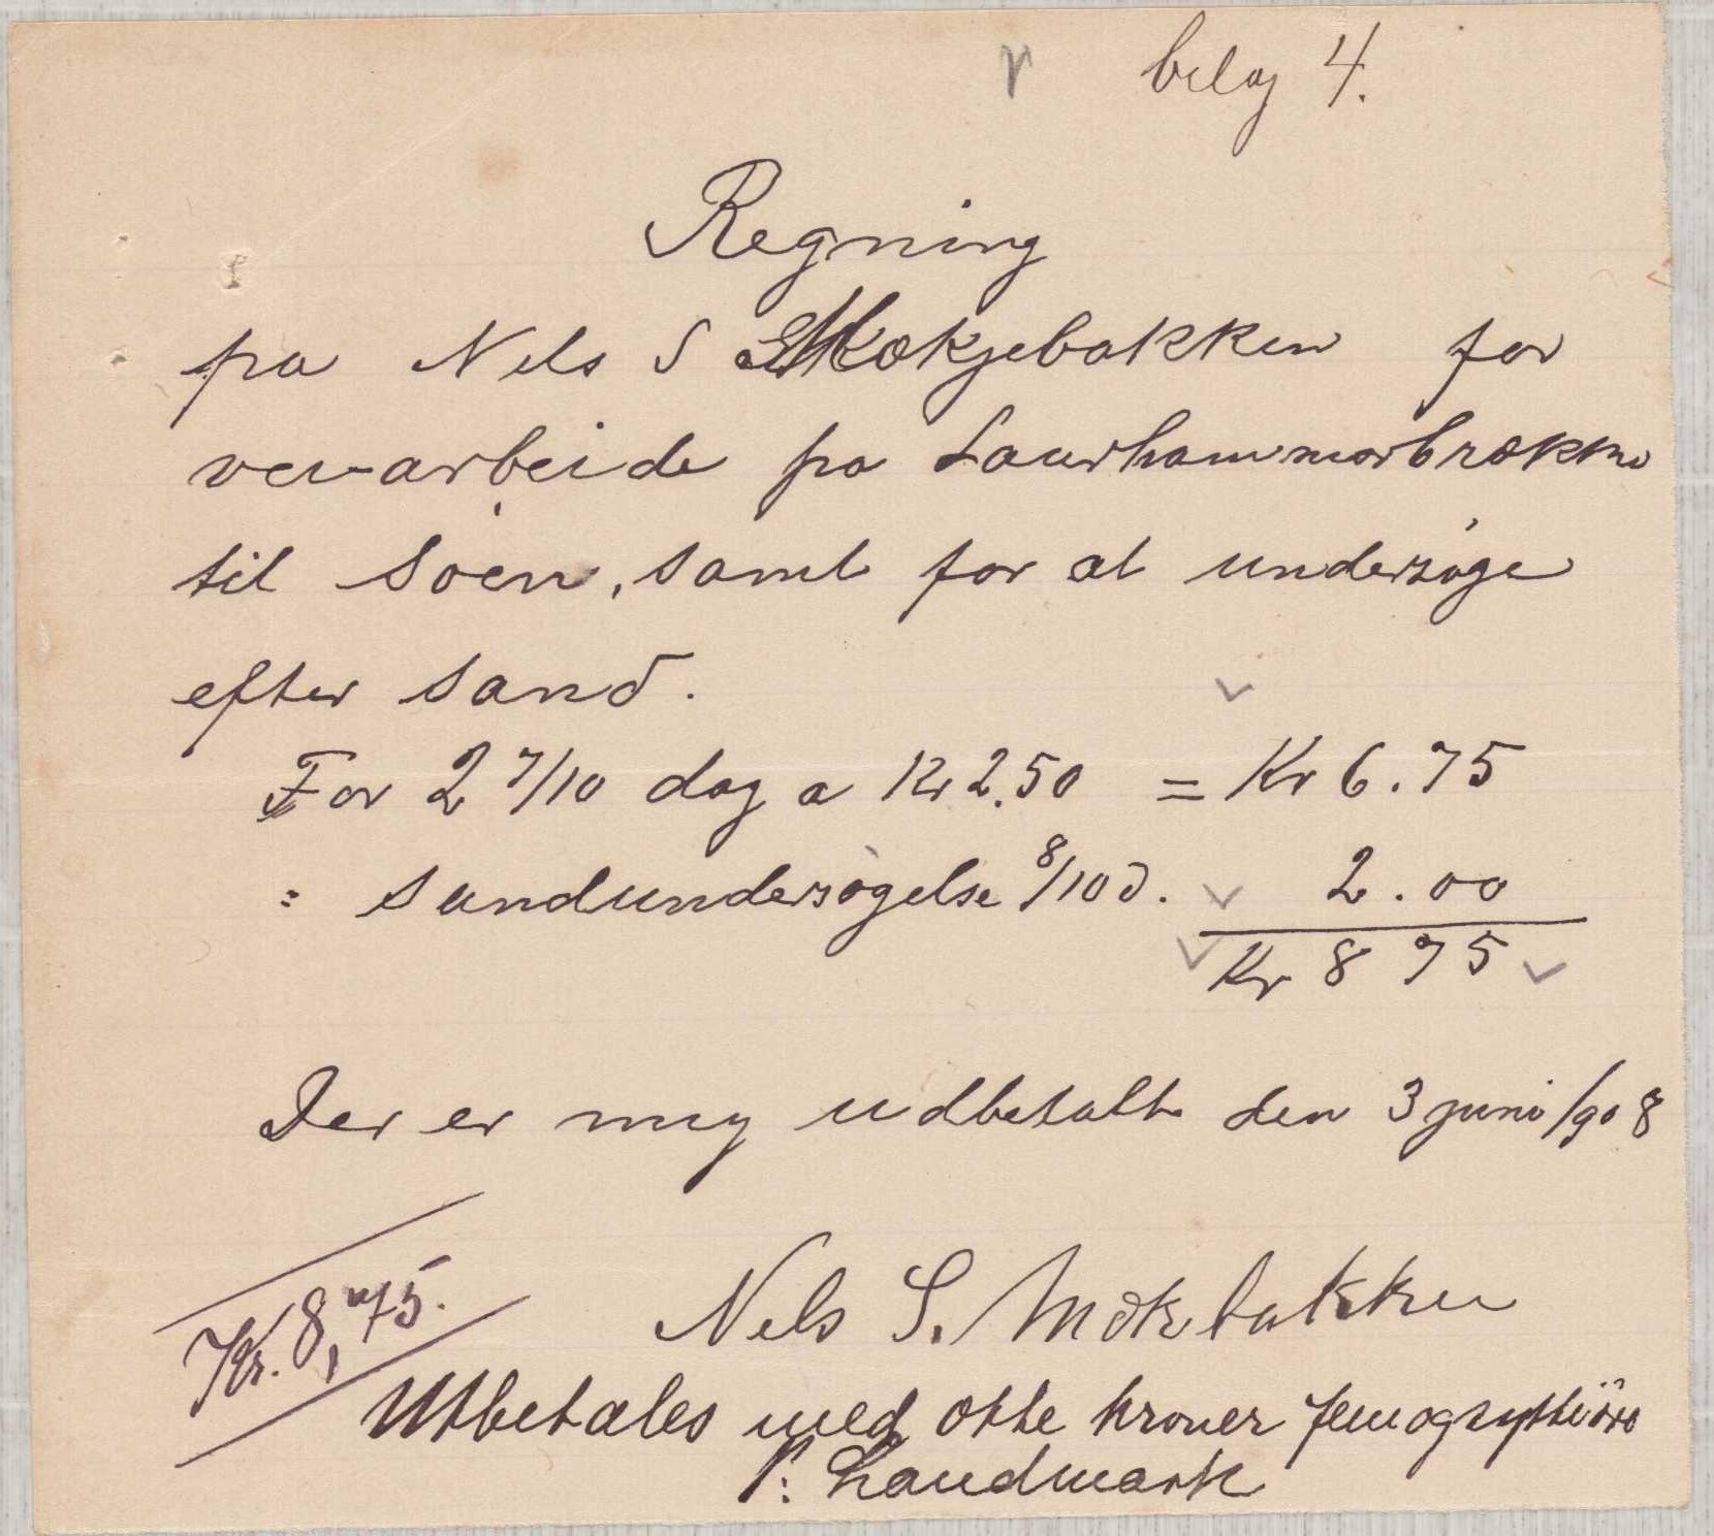 bilag 4.
Regning
fra Nels S Mokjebakken for
veiarbeide fra Laurhammarbrækken
til Søen, samt for at undersøge
efter sand.
For 2 7/10 dag a Kr 2.50 = Kr 6.75
: sandundersøgelse 8/10 d. 2.00
Kr 8 75
Der er mig udbetalt den 3 juni /908
Kr. 8,75.
Nels S. Mokbakken
Utbetales med otte kroner femogsyttiøre
P. Landmark